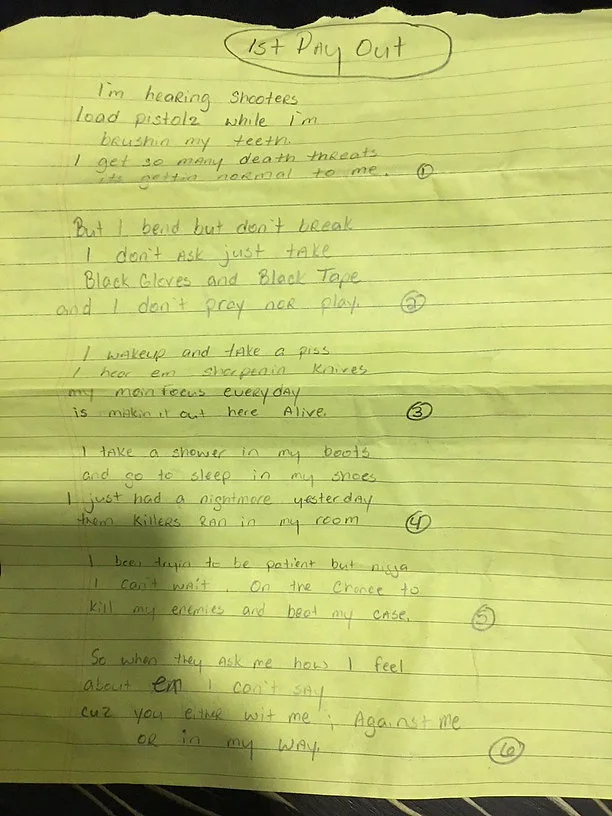 1st Pay Out
I'm hearing shooters
load pistolz while i'm
brushin my teeth.
I get so many death threats
its gettin normal to me. 1
But I bend but don't break
I don't ask just take
Black Gloves and Black Tape
and I don't pray nor play. 2
I wakeup and take a piss
I hear em sharpenin knives
my main focus everyday
is makin it out here Alive. 3
I take a shower in my boots
and go to sleep in my shoes
I just had a nightmare yesterday
them killers ran in my room 4
I been tryin to be patient but nigga
I can't wait. On the chance to
kill my enemies and beat my case. 5
So when they ask me how I feel
about em I can't say
cuz you either wit me ; Against me
or in my way. 6